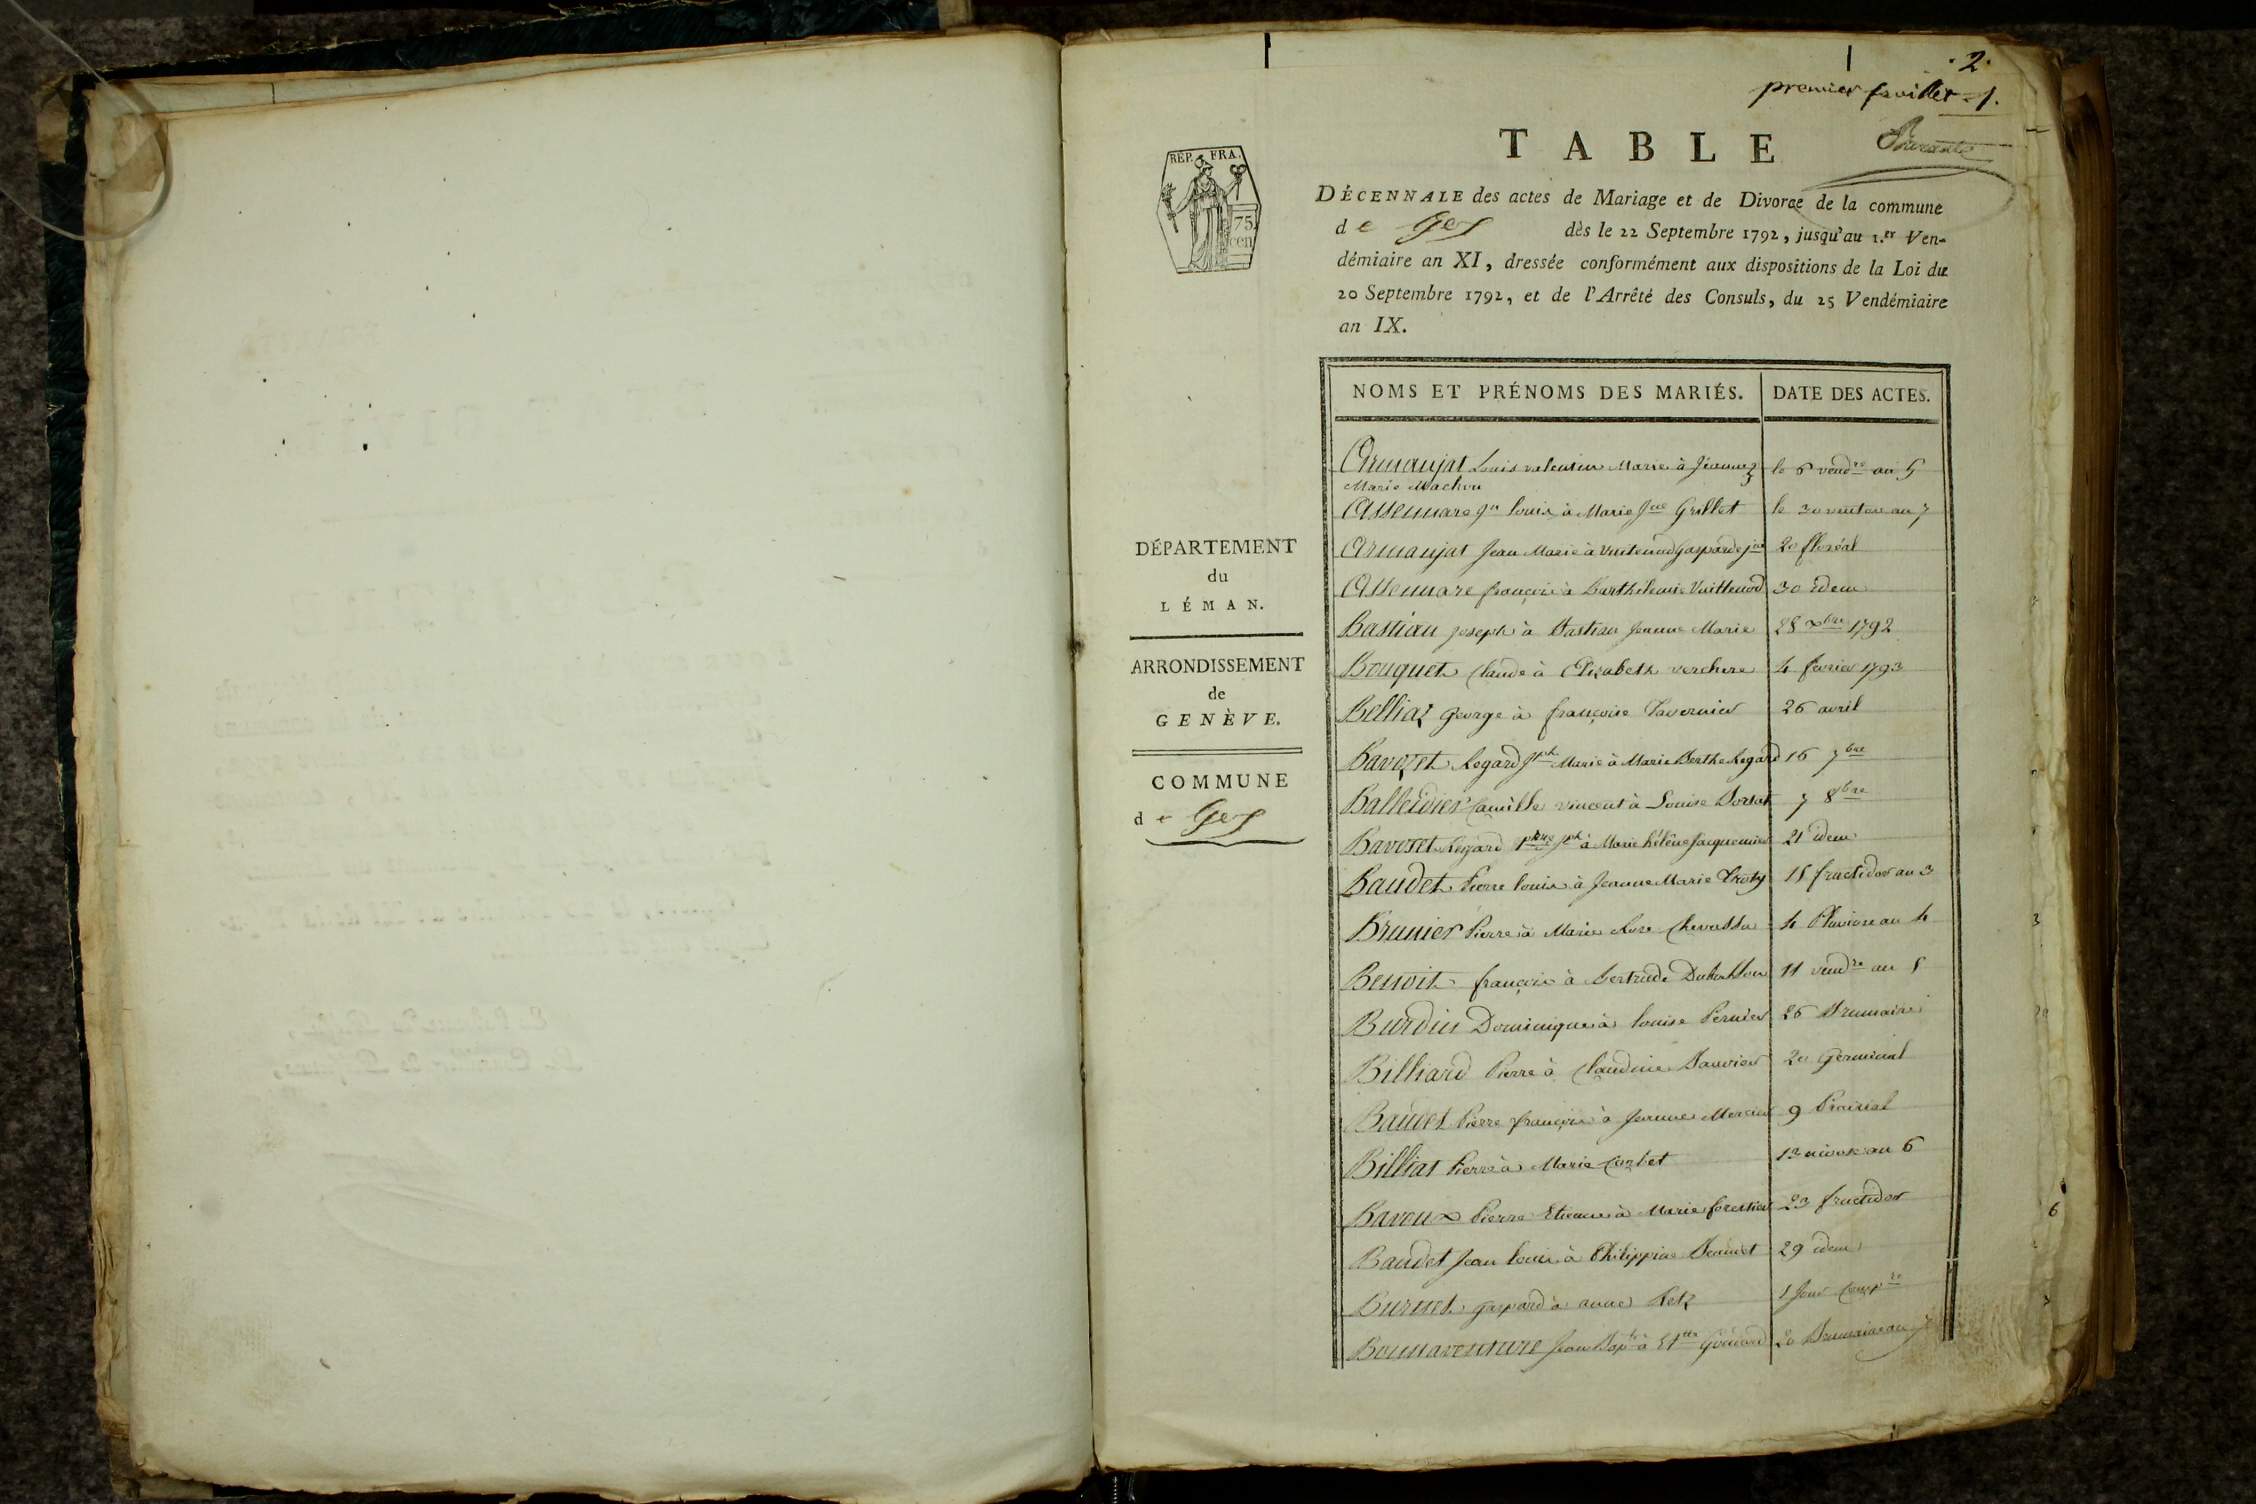 . 2 .
premier feuillet . 1.
REP. FRA.
75
cen
TABLE
DÉCENNALE des actes de Mariage et de Divorce de la commune
de Gex dès le 22 Septembre 1792, jusqu'au 1.er Ven-
démiaire an XI, dressée conformément aux dispositions de la Loi du
20 Septembre 1792, et de l'Arrêté des Consuls, du 25 Vendémiaire
an IX.
DÉPARTEMENT
du
LÉMAN.
ARRONDISSEMENT
de
GENÈVE.
COMMUNE
de Gex
NOMS ET PRÉNOMS DES MARIÉS. DATE DES ACTES.
Armanjat Louis valentin Marie à Jeanne le 6 vendre an 5
Marie Machon
Assennare Jn louis à Marie Jne Grillet le 30 ventose an 7
Armanjat Jean Marie à Vuitenod Gasparde jne 20 floréal
Assennare françois à Barthélemie Vuittenod 30 idem
Bastian joseph à Bastian Jeanne Marie 28 xbre 1792
Bouquet Claude à Elizabeth verchere 4 fevrier 1793
Belliaz George à françoise Tavernier 26 avril
Bavozet Regard Jph Marie à Marie Berthe Regard 16 7bre
Balleidier Camille vincent à Louise Dorsat 7 8bre
Bavozet Regard Jph à Marie hélène Jacquemier 21 idem
Baudet Pierre louis à Jeanne Marie 15 fructidor an 3
Brunier Pierre à Marie Rose Chevassu 4 Pluviose an 4
Benoit françois à Gertrude 11 vendre an 5
Burdin Dominique à louise Pernier 26 Brumaire
Billiard Pierre à Claudine 20 Germinal
Baudet Pierre françois à Jeanne Mercier 9 Prairial
Billiat Pierre à Marie Curbet 13 nivose an 6
Bavoux Pierre Etienne à Marie forestier 23 fructidor
Baudet Jean louis à Philippine 29 idem
Burnet Gaspard à anne Retz 1 Jour Compre
Bonnaventure Jean Bapte à Ettte Goncard 20 Brumaire an 7